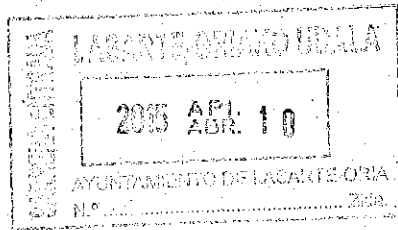 LASARTE-ORIAKO UDALA
2015 API. ABR. 10
AYUNTAMIENTO DE LASARTE-ORIA
N.º ........ Zkia.